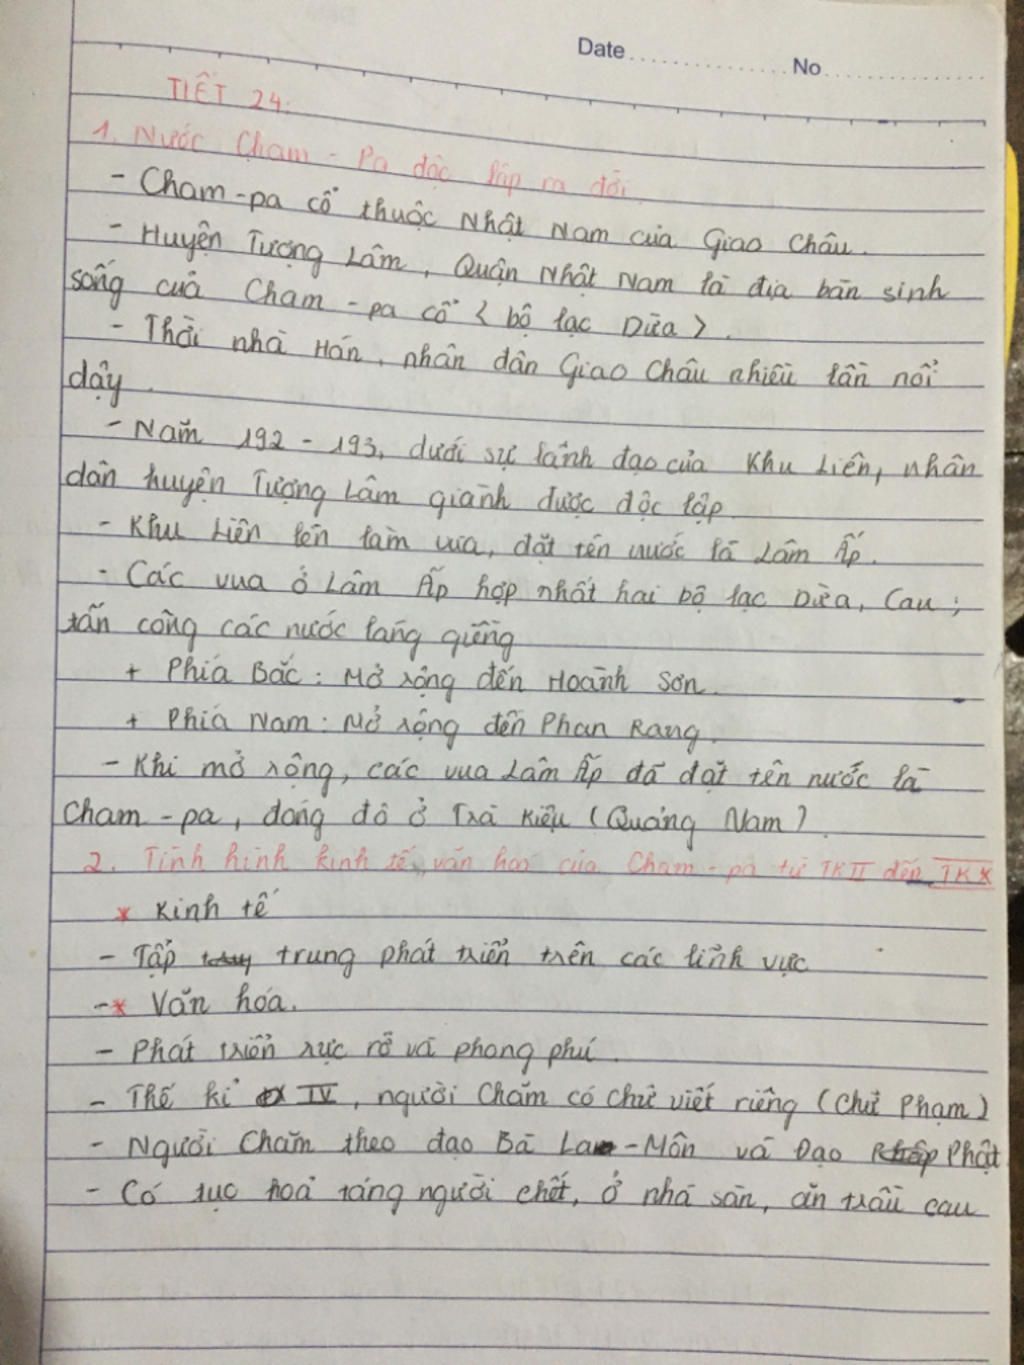 Date .................. No ..................
TIẾT 24.
1. Nước Cham - Pa độc lập ra đời.
- Cham-pa cổ thuộc Nhật Nam của Giao Châu.
- Huyện Tượng Lâm, Quận Nhật Nam là địa bàn sinh
sống của Cham - pa cổ < bộ lạc Dừa >.
- Thời nhà Hán, nhân dân Giao Châu nhiều lần nổi
dậy.
- Năm 192 - 193, dưới sự lãnh đạo của Khu Liên, nhân
dân huyện Tượng Lâm giành được độc lập
- Khu Liên lên làm vua, đặt tên nước là Lâm Ấp.
- Các vua ở Lâm Ấp hợp nhất hai bộ lạc Dừa, Cau;
tấn công các nước láng giềng
+ Phía Bắc: Mở rộng đến Hoành Sơn.
+ Phía Nam: Mở rộng đến Phan Rang.
- Khi mở rộng, các vua Lâm Ấp đã đặt tên nước là
Cham - pa, đóng đô ở Trà Kiệu (Quảng Nam).
2. Tình hình kinh tế, văn hoá của Cham - pa từ TK II đến TK X
* Kinh tế
- Tập trung phát triển trên các lĩnh vực
-* Văn hóa.
- Phát triển rực rỡ và phong phú.
- Thế kỉ IV, người Chăm có chữ viết riêng (Chữ Phạm)
- Người Chăm theo đạo Bà La - Môn và Đạo Phật
- Có tục hoả táng người chết, ở nhà sàn, ăn trầu cau